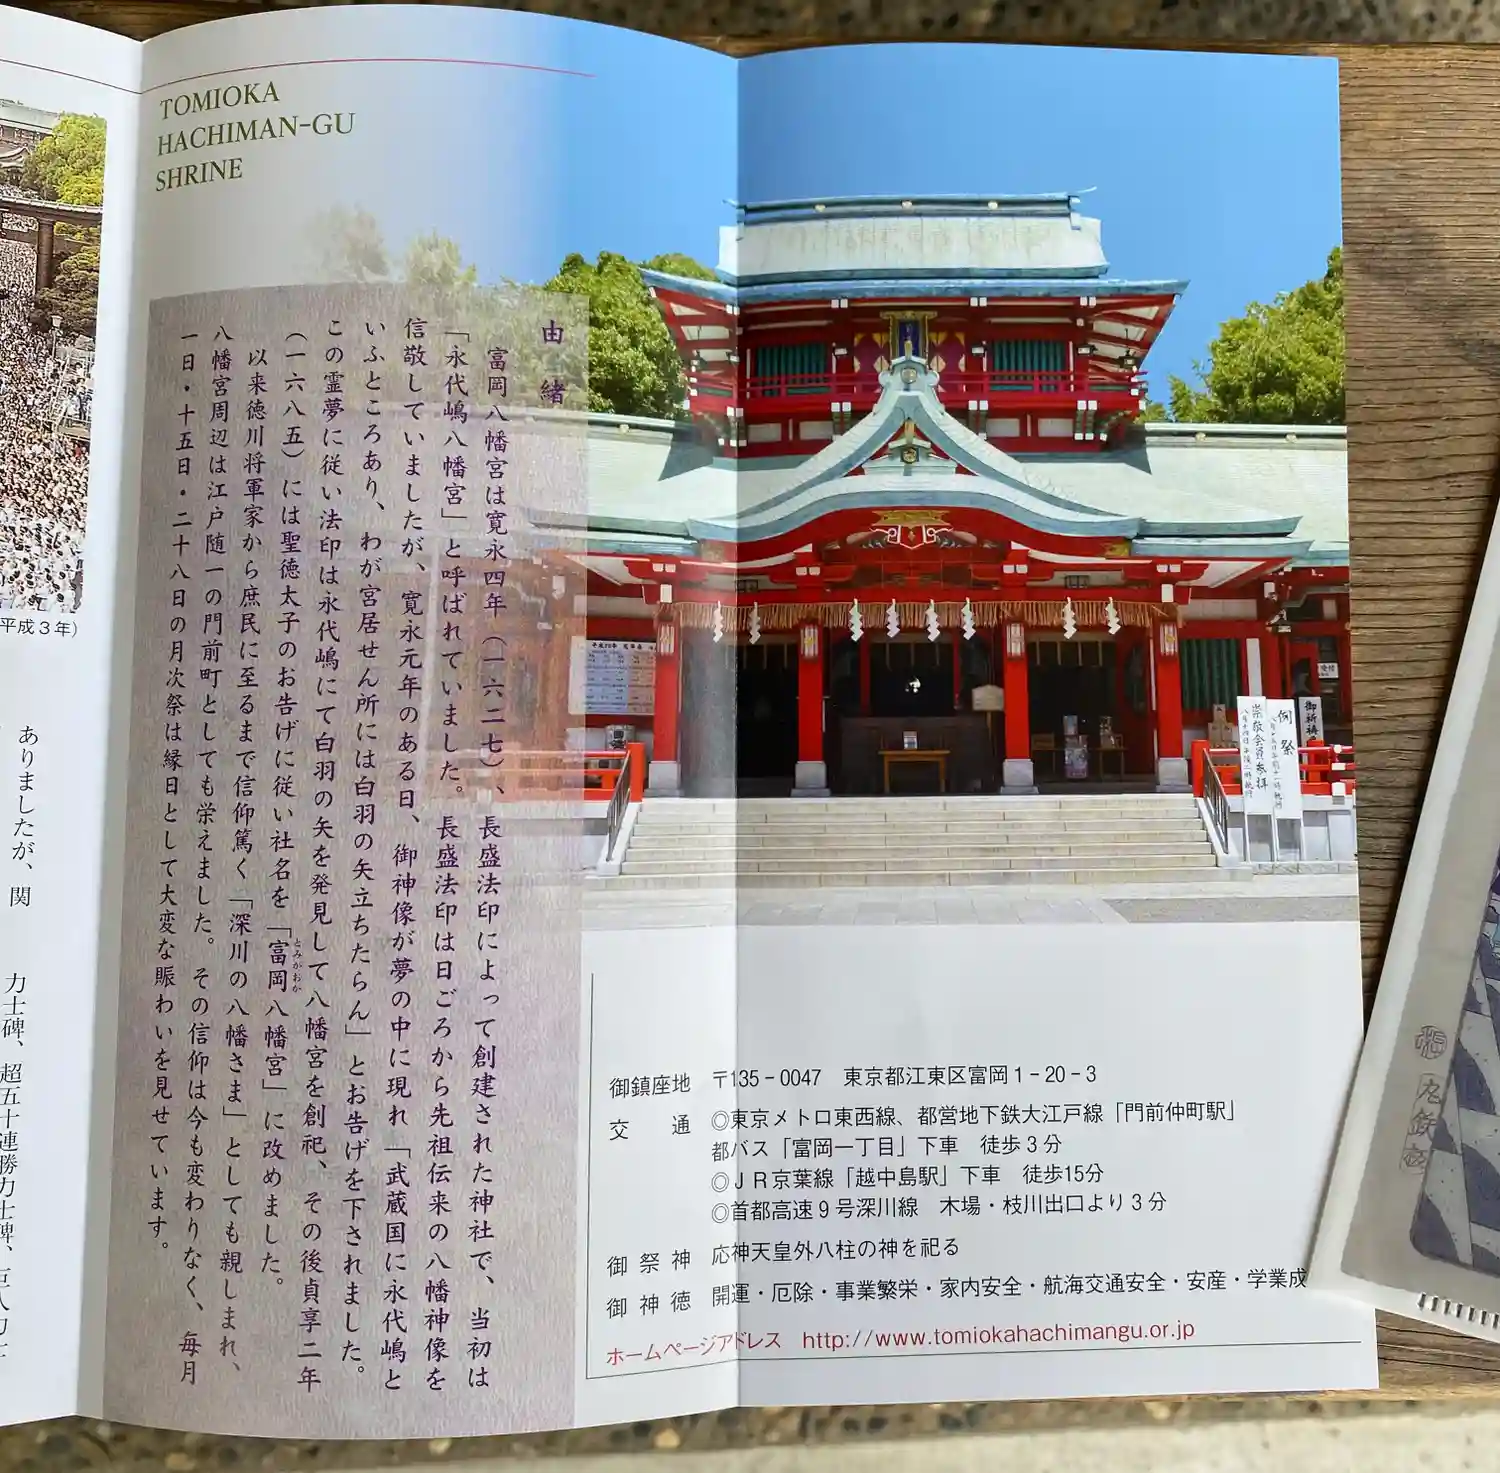 TOMIOKA
HACHIMAN-GU
SHRINE
由緒
富岡八幡宮は寛永四年（一六二七）、長盛法印によって創建された神社で、当初は
「永代嶋八幡宮」と呼ばれていました。長盛法印は日ごろから先祖伝来の八幡神像を
信敬していましたが、寛永元年のある日、御神像が夢の中に現れ「武蔵国に永代嶋と
いふところあり、わが宮居せん所には白羽の矢立ちたらん」とお告げを下されました。
この霊夢に従い法印は永代嶋にて白羽の矢を発見して八幡宮を創祀、その後貞享二年
（一六八五）には聖徳太子のお告げに従い社名を「富岡八幡宮」に改めました。
とみがおか
以来徳川将軍家から庶民に至るまで信仰篤く「深川の八幡さま」としても親しまれ、
八幡宮周辺は江戸随一の門前町としても栄えました。その信仰は今も変わりなく、毎月
一日・十五日・二十八日の月次祭は縁日として大変な賑わいを見せています。
御鎮座地 〒135-0047 東京都江東区富岡1-20-3
交通 ◎東京メトロ東西線、都営地下鉄大江戸線「門前仲町駅」
都バス「富岡一丁目」下車 徒歩3分
◎JR京葉線「越中島駅」下車 徒歩15分
◎首都高速9号深川線 木場・枝川出口より3分
御祭神 応神天皇外八柱の神を祀る
御神徳 開運・厄除・事業繁栄・家内安全・航海交通安全・安産・学業成
ホームページアドレス http://www.tomiokahachimangu.or.jp
平成3年）
ありましたが、関
力士碑、超五十連勝力士碑、巨人力士
例祭
崇敬会員参拝
御祈祷